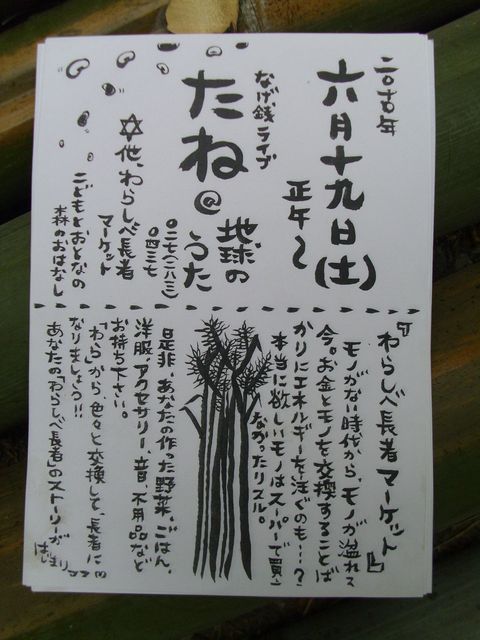 二〇一〇年
六月十九日(土)
正午〜
なげ銭ライブ
たね@地球のうた
〇二七(二八三)
〇四三七
✡他、わらしべ長者
マーケット
こどもとおとなの
森のおはなし
『わらしべ長者マーケット』
モノがない時代から、モノが溢れる
今。お金とモノを交換することば
かりにエネルギーを注ぐのも…?
本当に欲しいモノはスーパーで買え
なかったりスル。
是非、あなたの作った野菜、ごはん、
洋服、アクセサリー、音、不用品など
お持ち下さい。
「わら」から、色々と交換して、長者に
なりましょう!!
あなたの「わらしべ長者」のストーリーが
はじまり